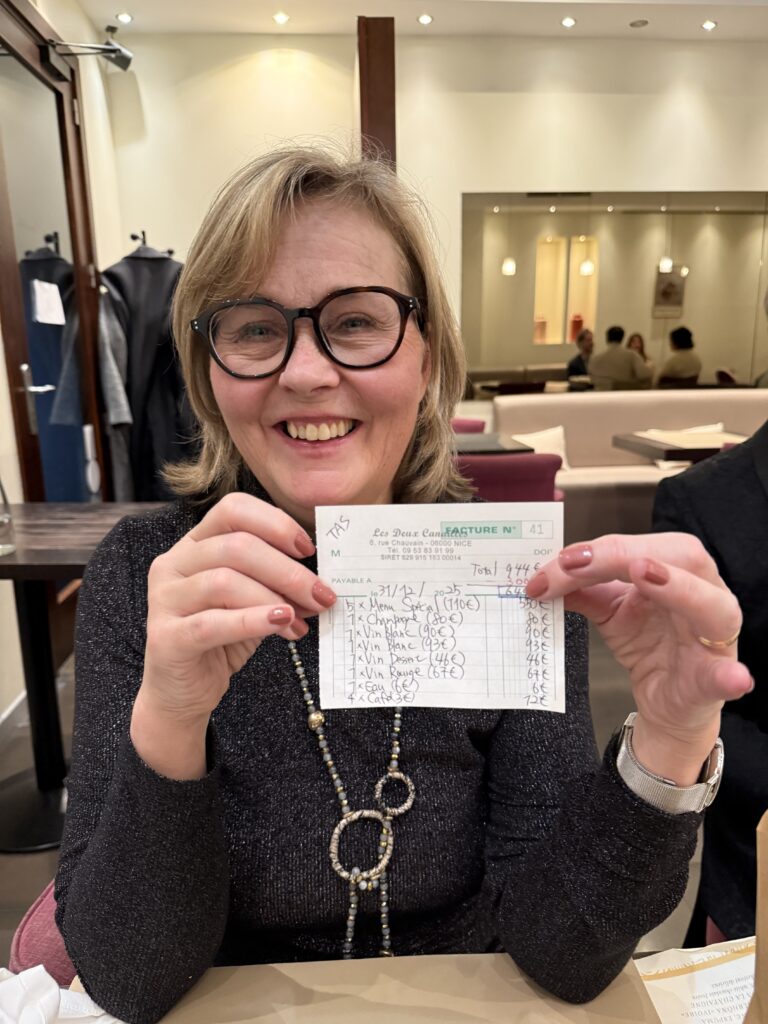 TAS
Les Deux Canailles
FACTURE N° 41
6, rue Chauvain - 06000 NICE
Tél. 09 53 83 91 99
SIRET 629 915 183 00014
M
DOIT
Total 944€
PAYABLE A
le 31/12/ 2025
5 x Menu Spécial (110€) 550€
1 x Champagne (80€) 80€
1 x Vin Blanc (90€) 90€
1 x Vin Blanc (93€) 93€
1 x Vin Dessert (46€) 46€
1 x Vin Rouge (67€) 67€
1 x Eau (6€) 6€
4 x Café 3€) 12€